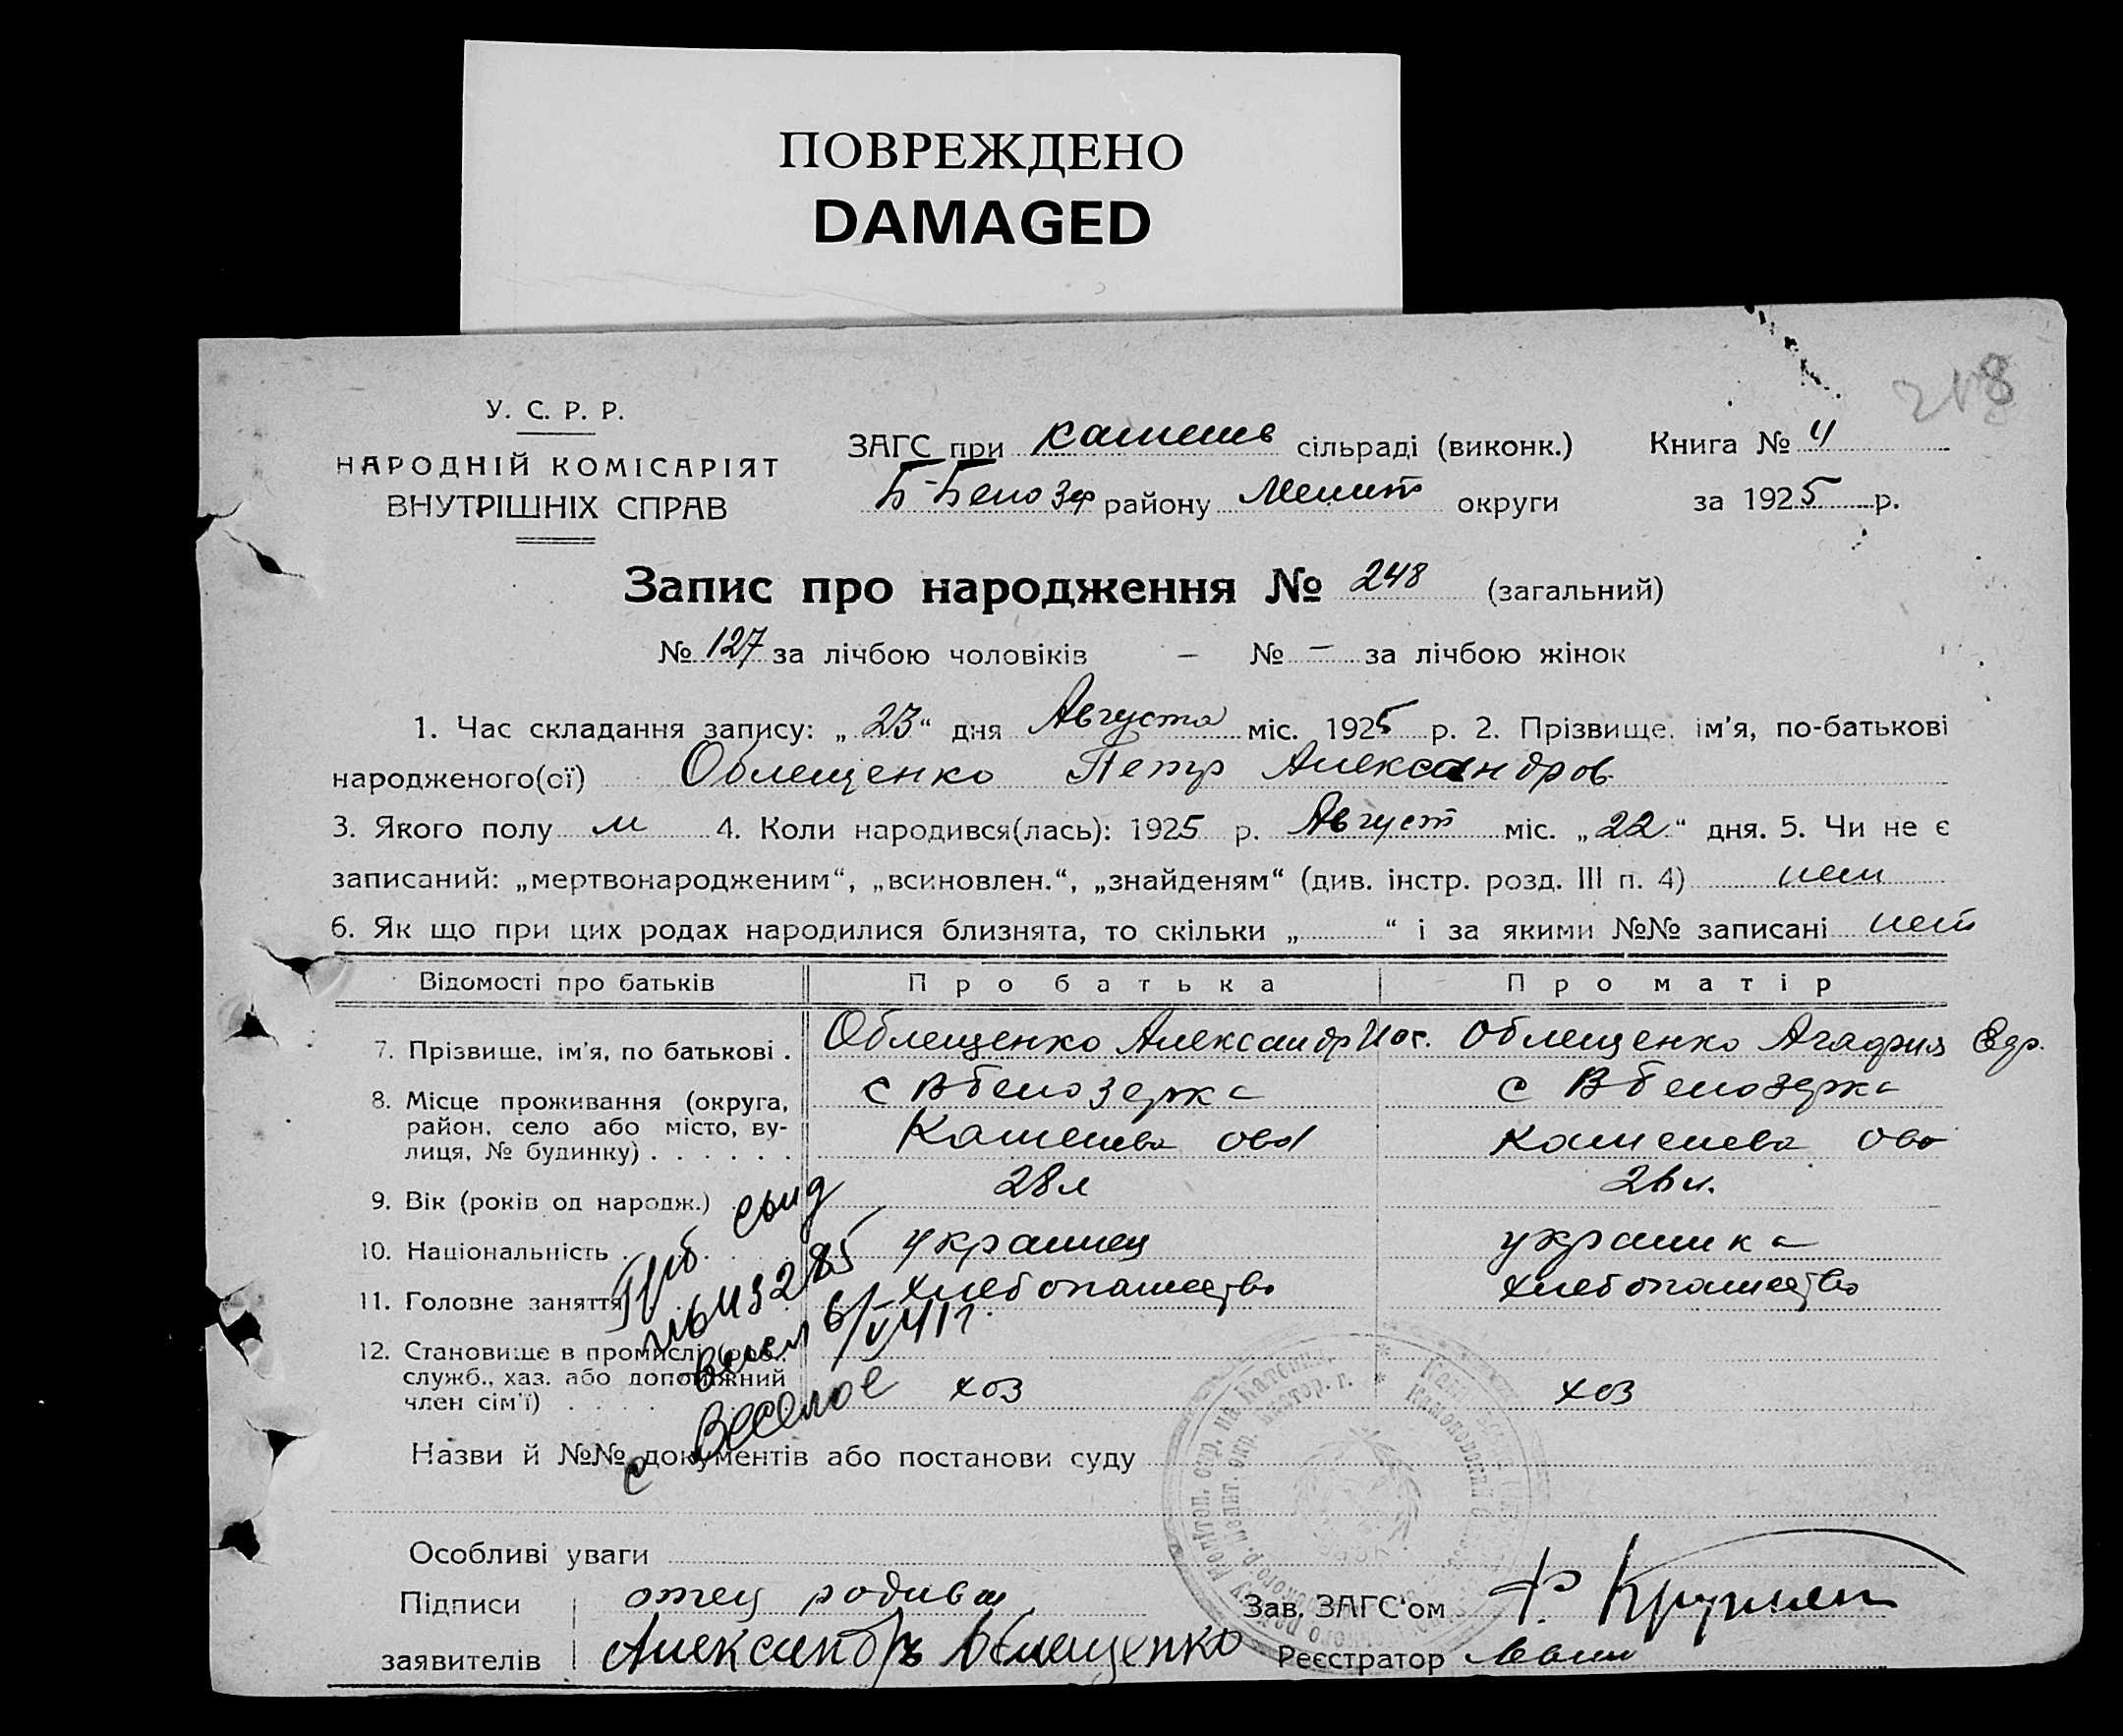 ПОВРЕЖДЕНО
DAMAGED
У. С. Р. Р.
НАРОДНІЙ КОМІСАРІЯТ
ВНУТРІШНІХ СПРАВ
ЗАГС при сільраді (виконк.) Книга № 4
Б-Белозер району Мелит округи за 1925 р.
Запис про народження № 248 (загальний)
№ 127 за лічбою чоловіків – № – за лічбою жінок
1. Час складання запису: „ 23 “ дня Августа міс. 1925 р. 2. Прізвище, ім'я, по-батькові
народженого(ої) Облещенко Петр Александров
3. Якого полу м 4. Коли народився(лась): 1925 р. Август міс. „ 22 “ дня. 5. Чи не є
записаний: „мертвонародженим“, „всиновлен.“, „знайденям“ (див. інстр. розд. III п. 4) нет
6. Як що при цих родах народилися близнята, то скільки „ “ і за якими №№ записані нет
Відомості про батьків Про батька Про матір
7. Прізвище, ім'я, по батькові . Облещенко Александр Иос. Облещенко Агафия
8. Місце проживання (округа, с Вбелозерка с Вбелозерка
район, село або місто, ву-
лиця, № будинку) . . . . . .
9. Вік (років од народж.) 28л 26л.
10. Національність . украинец украинка
11. Головне заняття хлебопашество хлебопашество
12. Становище в промислі (роб.,
служб., хаз. або допоміжний
член сім'ї) . . . . хоз хоз
с Веселое
Назви й №№ документів або постанови суду
Особливі уваги
Підписи отец
заявителів Александръ Облещенко
Зав. ЗАГС'ом
Реєстратор